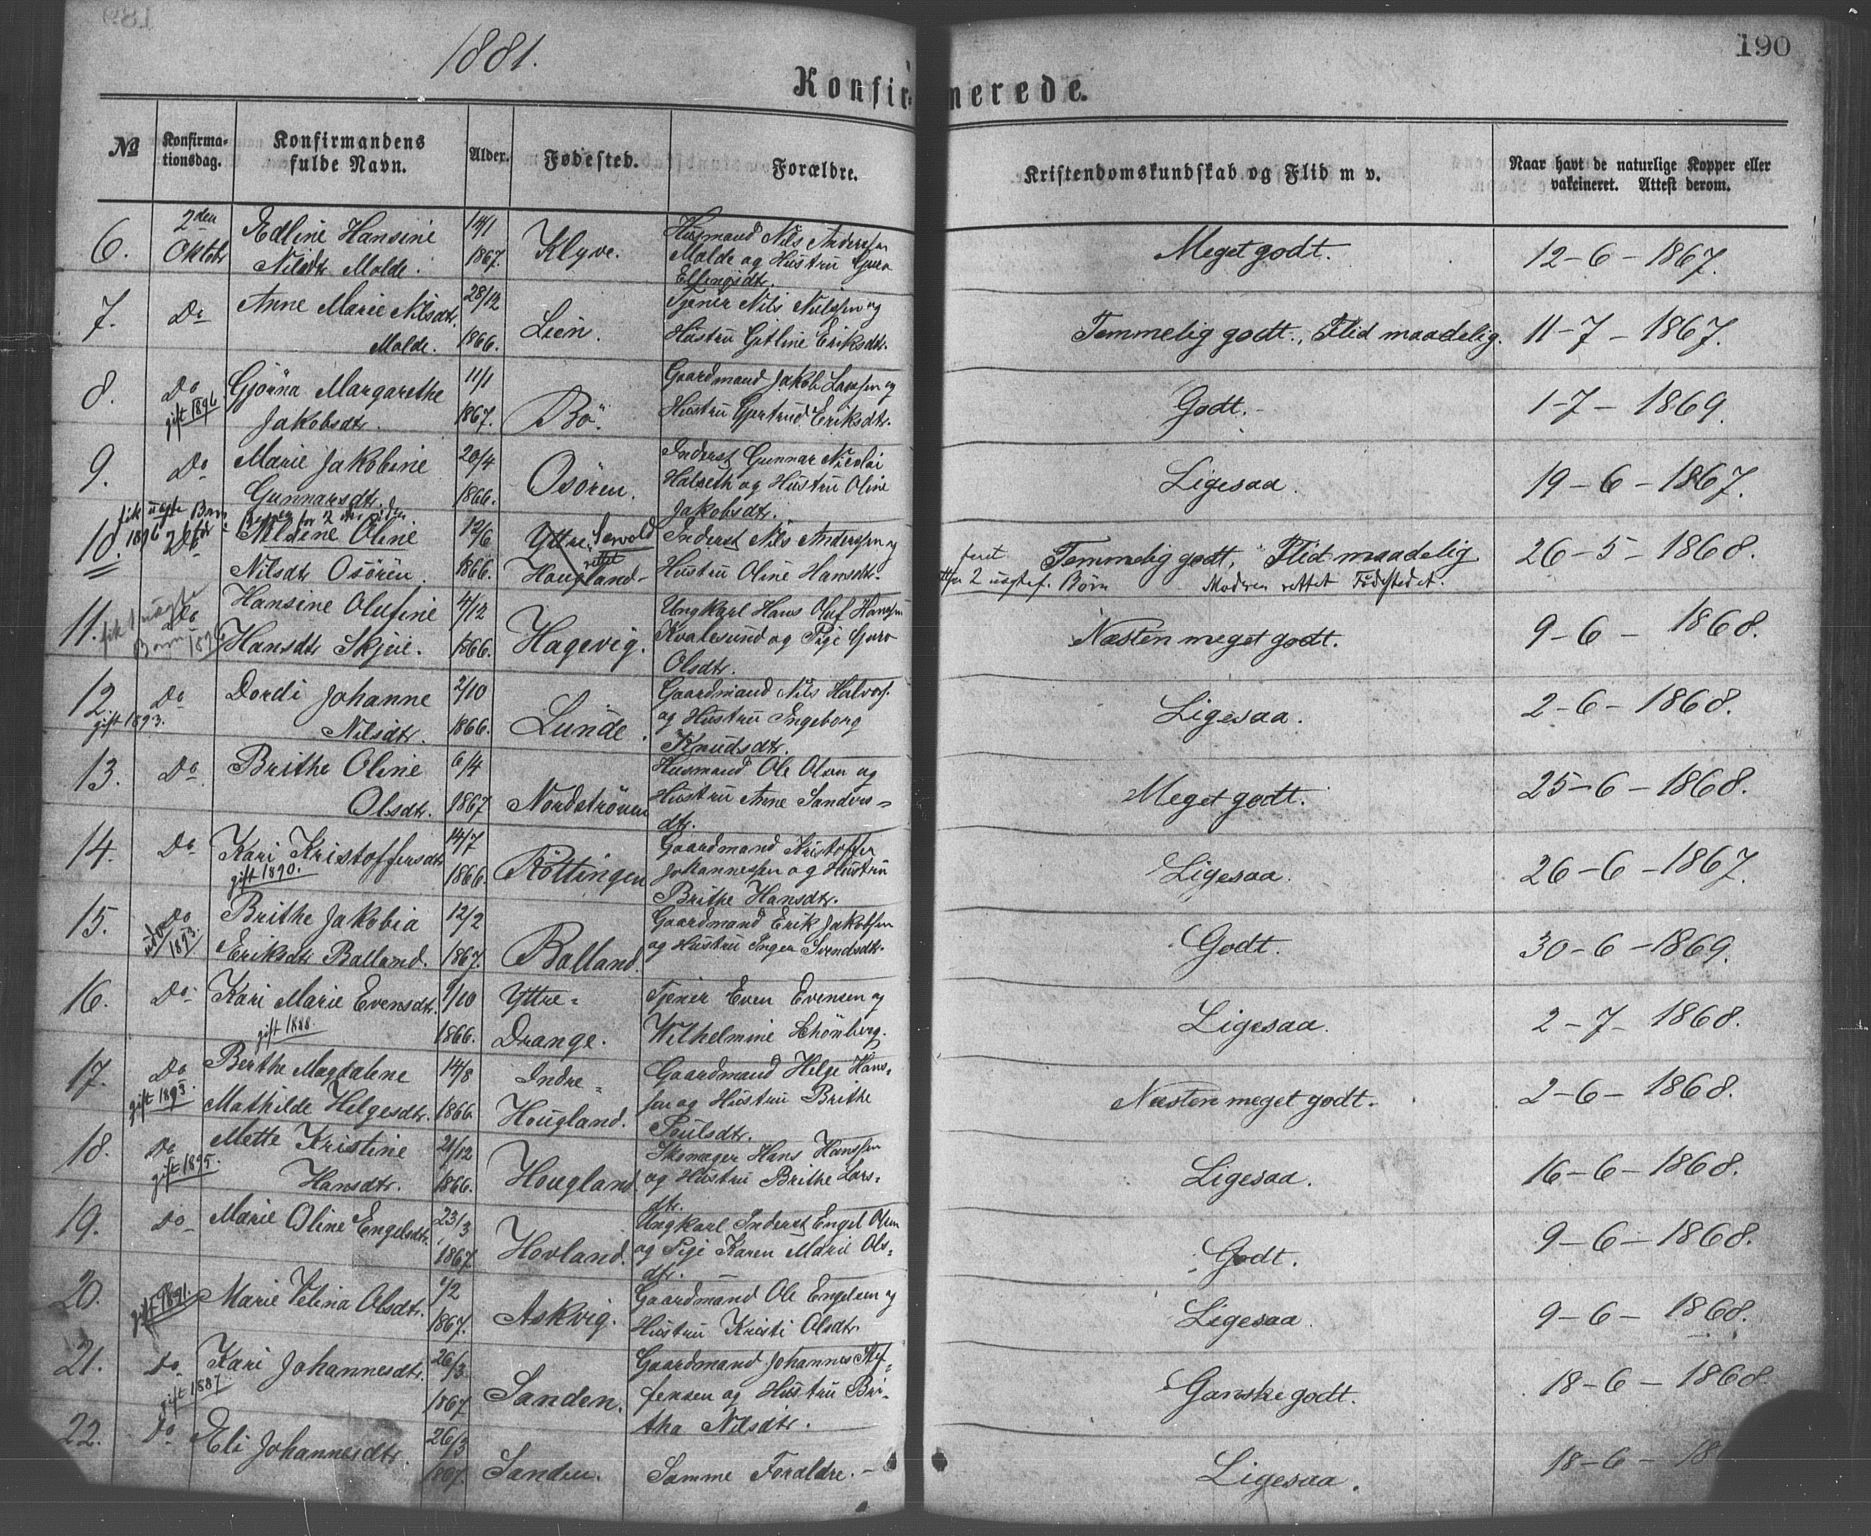 1881.
190
Konfirmerede.
№
Konfirma-
tionsdag.
Konfirmandens
fulde Navn.
Alder.
Fødested.
Forældre.
Kristendomskundskab og Flid m v.
Naar havt de naturlige Kopper eller
vakcineret. Attest derom.
6. 2den Oktbr
Edline Hansine
Nilsdtr Molde.
14/1
1867.
Klyve.
Husmand Nils Andersen
Molde og Hustru Guro
Ellingsdtr.
Meget godt.
12-6-1867.
7. Do
Anne Marie Nilsdtr.
Molde.
28/12
1866.
Lien.
Tjener Nils Nielsen og
Hustru Gotline Eriksdtr.
Temmelig godt., Flid maadelig.
11-7-1867.
8. Do
gift 1896
Gjørna Margarethe
Jakobsdtr.
11/1
1867.
Bø.
Gaardmand Jakob Larssen og
Hustru Gjertrud Eriksdtr.
Godt.
1-7-1869.
9. Do
Marie Jakobine
Gunnarsdtr.
20/4
1866.
Osøren.
Inderst Gunnar Nicolai
Halseth og Hustru Oline
Jakobsdtr.
Ligesaa.
19-6-1867.
10. Do
fik uægte Barn
1896
Oline
Nilsdtr Osøren.
12/6
1866.
Yttre
Hougland
Sævold
rettet
Inderst Nils Andersen og
Hustru Oline Hansdtr.
Temmelig godt, Flid maadelig
2 uægtef. Børn
Moderen rettet Fødestedet.
26-5-1868.
11. Do
fik uægte
Barn 1896
Hansine Olufine
Hansdtr Skjeie.
4/12
1866.
Hagevig.
Ungkarl Hans Oluf Hanssen
Kvalesund og Pige Guro
Olsdtr.
Næsten meget godt.
9-6-1868.
12. Do
gift 1893.
Dordi Johanne
Nilsdtr.
2/10
1866.
Lunde.
Gaardmand Nils Halvors.
og Hustru Ingeborg
Knudsdtr.
Ligesaa.
2-6-1868.
13. Do
Brithe Oline
Olsdtr.
6/4
1867
Nordstrønen
Husmand Ole Olsen og
Hustru Anne Sanders-
dtr.
Meget godt.
25-6-1868.
14. Do
Kari Kristoffersdtr
gift 1890.
14/7
1866.
Røttingen
Gaardmand Kristoffer
Johannessen og Hustru
Brithe Hansdtr.
Ligesaa.
26-6-1867.
15. Do
1893.
Brithe Jakobia
Eriksdtr Balland.
12/2
1867.
Balland.
Gaardmand Erik Jakobsen
og Hustru Inger Svendsdtr.
Godt.
30-6-1869.
16. Do
Kari Marie Evensdtr.
gift 1888
1866.
Yttre-
Drange.
Tjener Even Evensen og
Wilhelmine Schönberg.
Ligesaa.
2-7-1868.
17. Do
gift 1893.
Berthe Magdalene
Mathilde Helgesdtr.
14/8
1866.
Indre-
Hougland.
Gaardmand Helge Hans-
sen og Hustru Brithe
Poulsdtr.
Næsten meget godt.
2-6-1868.
18. Do
gift 1895.
Mette Kristine
Hansdtr.
21/12
1866.
Hougland.
Skomager Hans Hanssen
og Hustru Brithe Lars-
dtr.
Ligesaa.
16-6-1868.
19. Do
Marie Oline Engelsdtr.
23/3
1867.
Hovland.
Ungkarl Inderst Engel Olsen
og Pige Karen Marie Ols-
dtr.
Godt.
9-6-1868.
20. Do
gift 1891.
Marie Velina Olsdtr.
1867.
Askvig.
Gaardmand Ole Engelsen og
Hustru Kristi Olsdtr.
Ligesaa.
9-6-1868.
21. Do
gift 1887
Kari Johannesdtr.
26/3
1867
Sanden.
Gaardmand Johannes Stef-
fensen og Hustru Bri-
tha Nilsdtr.
Ganske godt.
18-6-1868
22. Do
Eli Johannesdtr.
26/3
1867.
Sanden.
Samme Forældre.
Ligesaa.
18-6-18